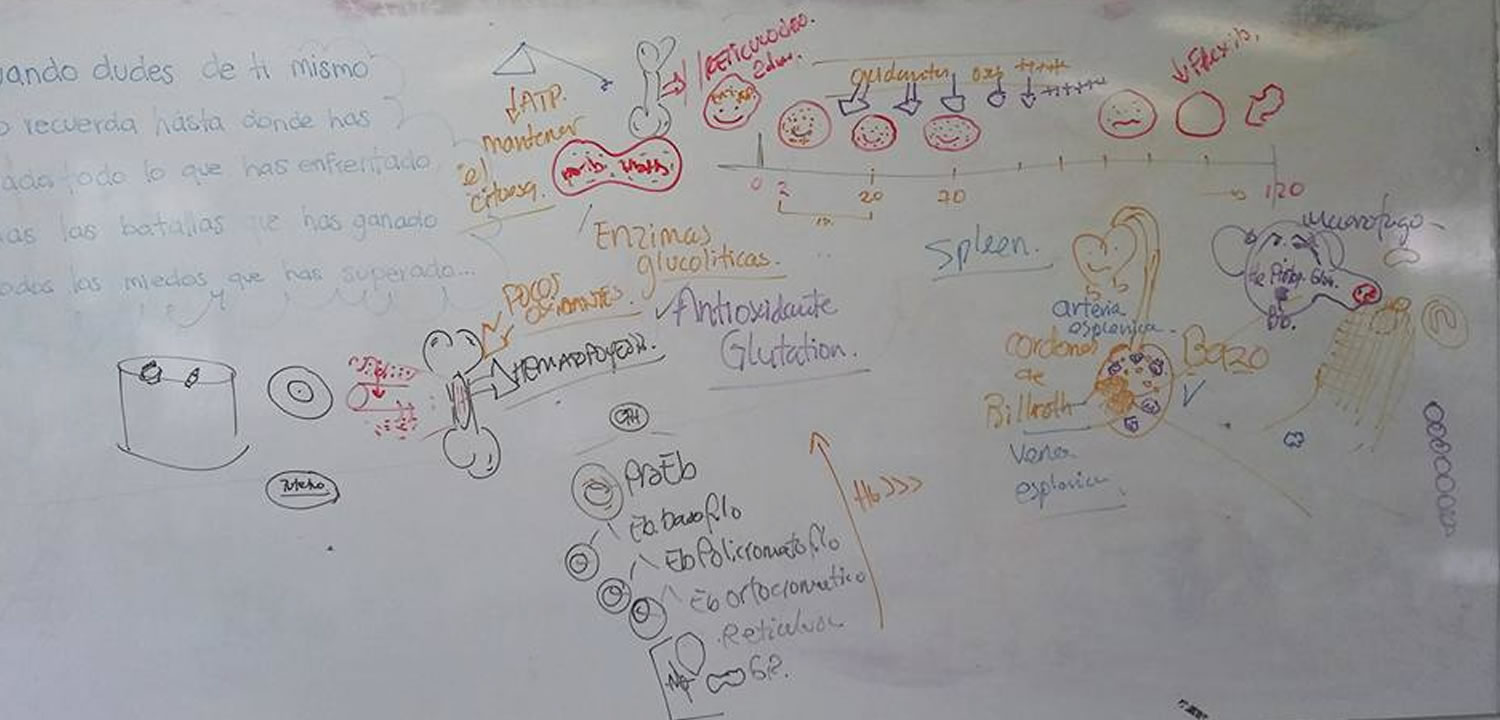 uando dudes de ti mismo
o recuerda hasta donde has
ado, todo lo que has enfrentado
as las batallas que has ganado
odos los miedos que has superado...
↓ATP.
mantener
el
citoesq.
Enzimas
glucolíticas.
✓Antioxidante
Glutation.
Pocos
HEMATOPOYESIS.
2 días.
oxidantes oxs ++++
+++++++
↓Flexib.
0 2 20 70 120
Spleen.
arteria
esplenica.
cordones
de
Billroth
Bazo
Vena
esplenica
Macrofago
Bb.
ProEb
Eb. basofilo
Eb Policromatofilo
Eb ortocromatico
Reticuloc
GR.
Hb>>>